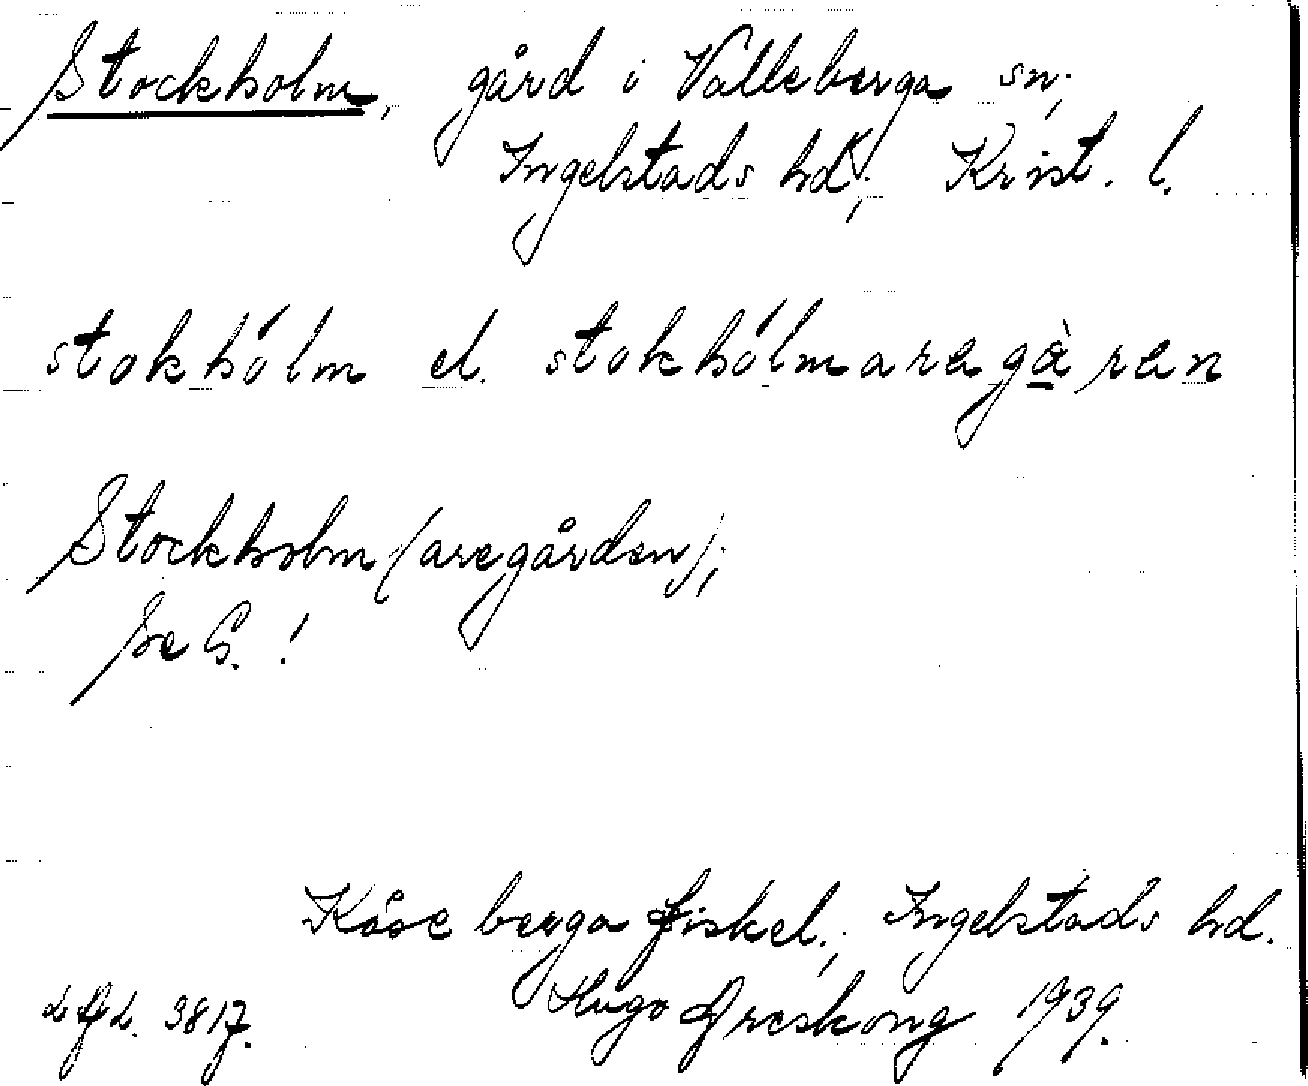 Stockholm, gård i Valleberga sn;
Ingelstads hd; Krist. l.
stokhólm el. stokhólmaregàren
Stockholm (aregården);
se G. !
Kåseberga fiskel.; Ingelstads hd.
Hugo Areskoug 1939.
3817.